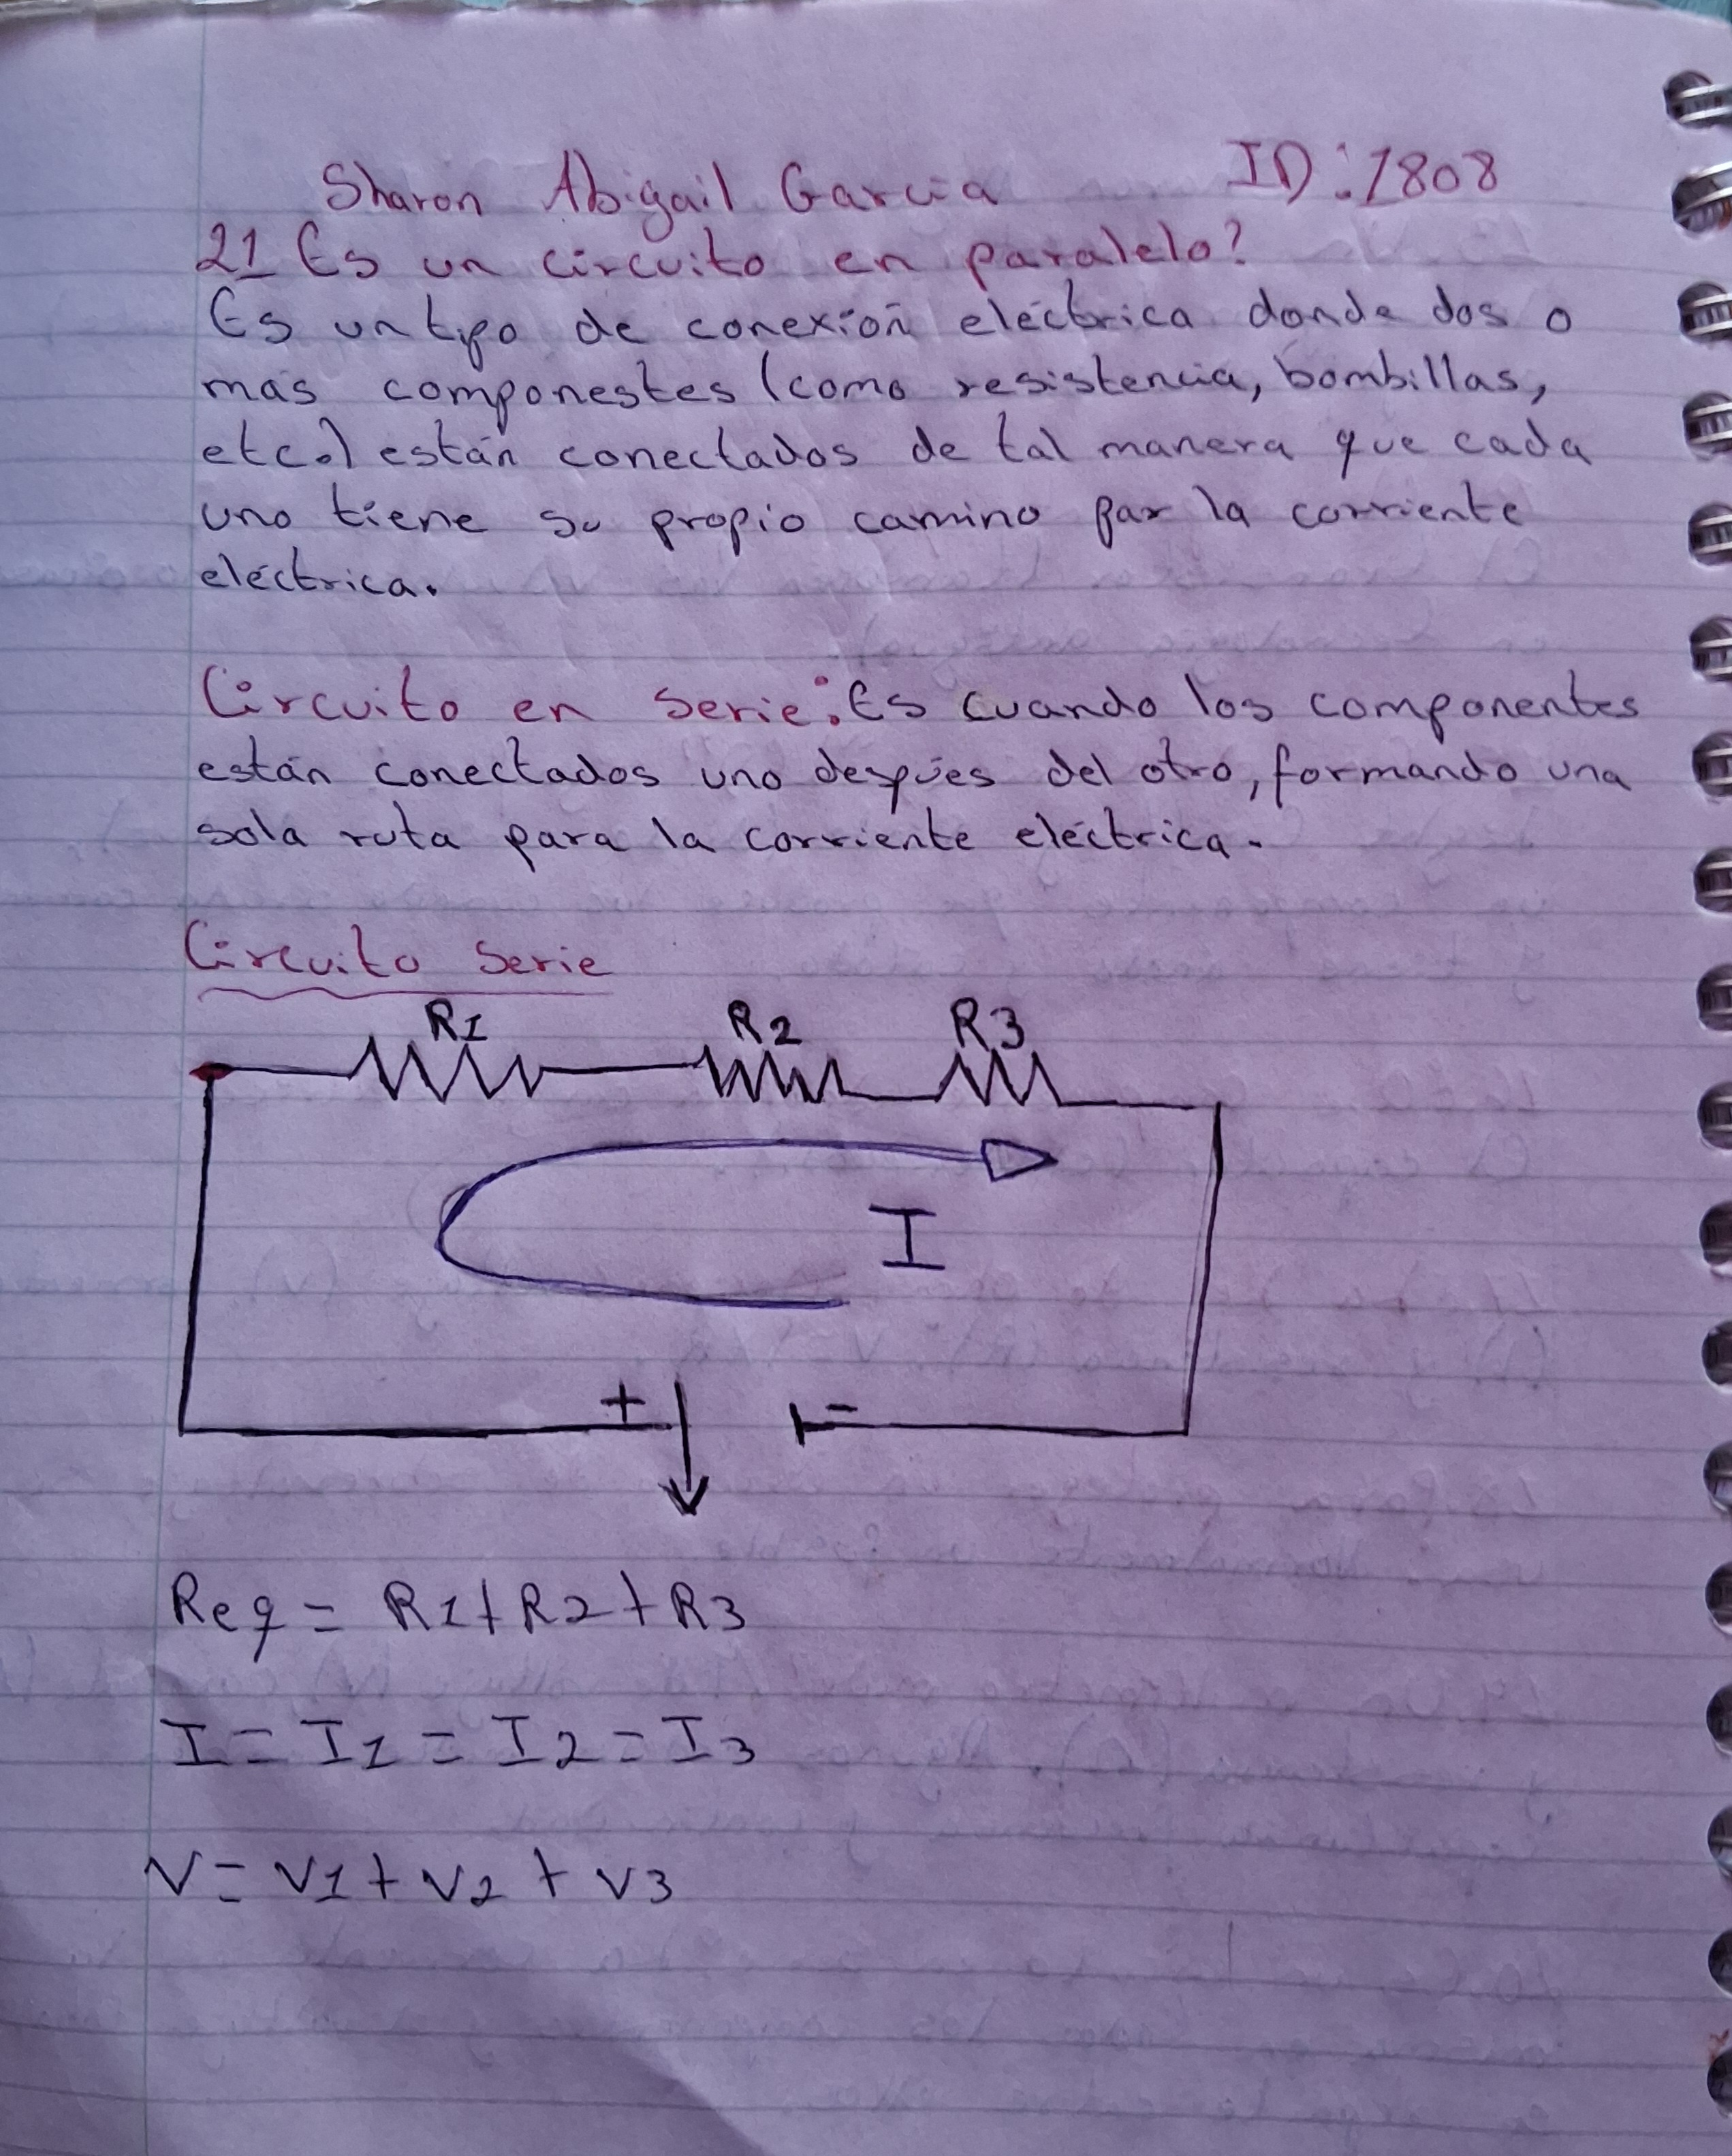 Sharon Abigail Garcia ID:1808
21 Es un circuito en paralelo?
Es un tipo de conexión eléctrica donde dos o
más componestes (como resistencia, bombillas,
etc.) están conectados de tal manera que cada
uno tiene su propio camino par la corriente
eléctrica.
Circuito en serie: Es cuando los componentes
están conectados uno despúes del otro, formando una
sola ruta para la corriente eléctrica.
Circuito Serie
R1 R2 R3
I
+ -
Req = R1+R2+R3
I = I1 = I2 = I3
V = V1 + V2 + V3